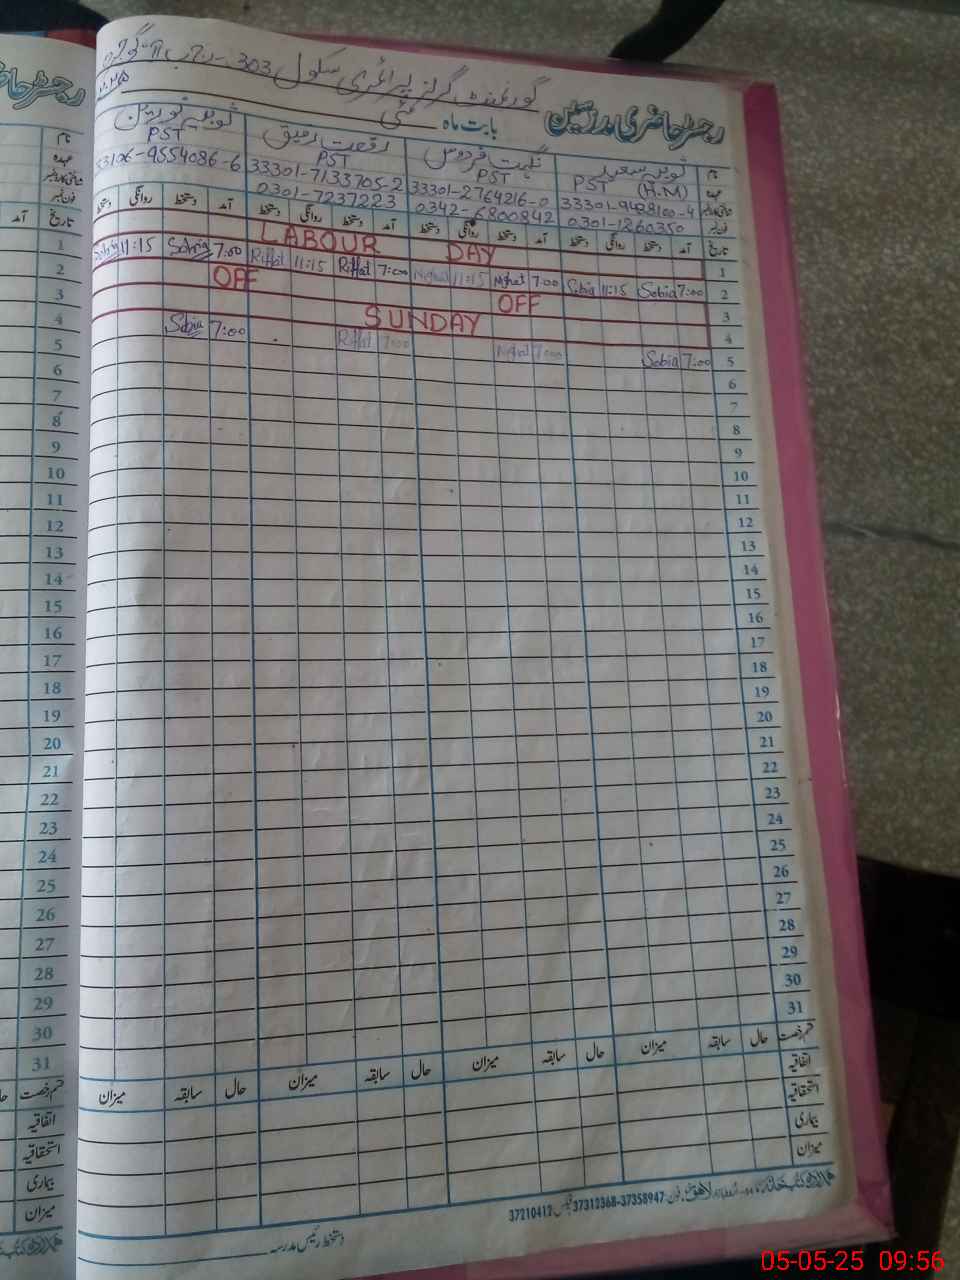 گورنمنٹ گرلز پرائمری سکول 303 ر-ب
رجسٹر حاضری مدرسین
بابت ماہ مئی
نام
ثوبیہ سعید
نگہت فردوس
رفعت رفیق
ثوبیہ نورین
عہدہ
PST (H.M)
PST
PST
PST
شناختی کارڈ نمبر
33301-9428100-4
33301-2764216-0
33301-7133705-2
33106-9554086-6
فون نمبر
0301-1260350
0342-6800842
0301-7237223
تاریخ آمد دستخط روانگی دستخط آمد دستخط روانگی دستخط آمد دستخط روانگی دستخط آمد دستخط روانگی دستخط
1 LABOUR DAY
2 7:00 Sobia 11:15 Sobia 7:00 Nghat 11:15 Nghat 7:00 Riffat 11:15 Riffat 7:00 Sobia 11:15 Sobia
3 OFF OFF
4 SUNDAY
5 7:00 Sobia 7:00 Nghat 7:00 Riffat 7:00 Sobia
6
7
8
9
10
11
12
13
14
15
16
17
18
19
20
21
22
23
24
25
26
27
28
29
30
31
قسم رخصت حال سابقہ میزان حال سابقہ میزان حال سابقہ میزان حال سابقہ میزان
اتفاقیہ
استحقاقیہ
بیماری
میزان
37210412 فیکس 37312368-37358947 فون لاہور
دستخط رئیس مدرسہ
رجسٹر حاضری
نام
عہدہ
شناختی کارڈ نمبر
فون نمبر
تاریخ آمد
1
2
3
4
5
6
7
8
9
10
11
12
13
14
15
16
17
18
19
20
21
22
23
24
25
26
27
28
29
30
31
قسم رخصت
اتفاقیہ
استحقاقیہ
بیماری
میزان
05-05-25 09:56